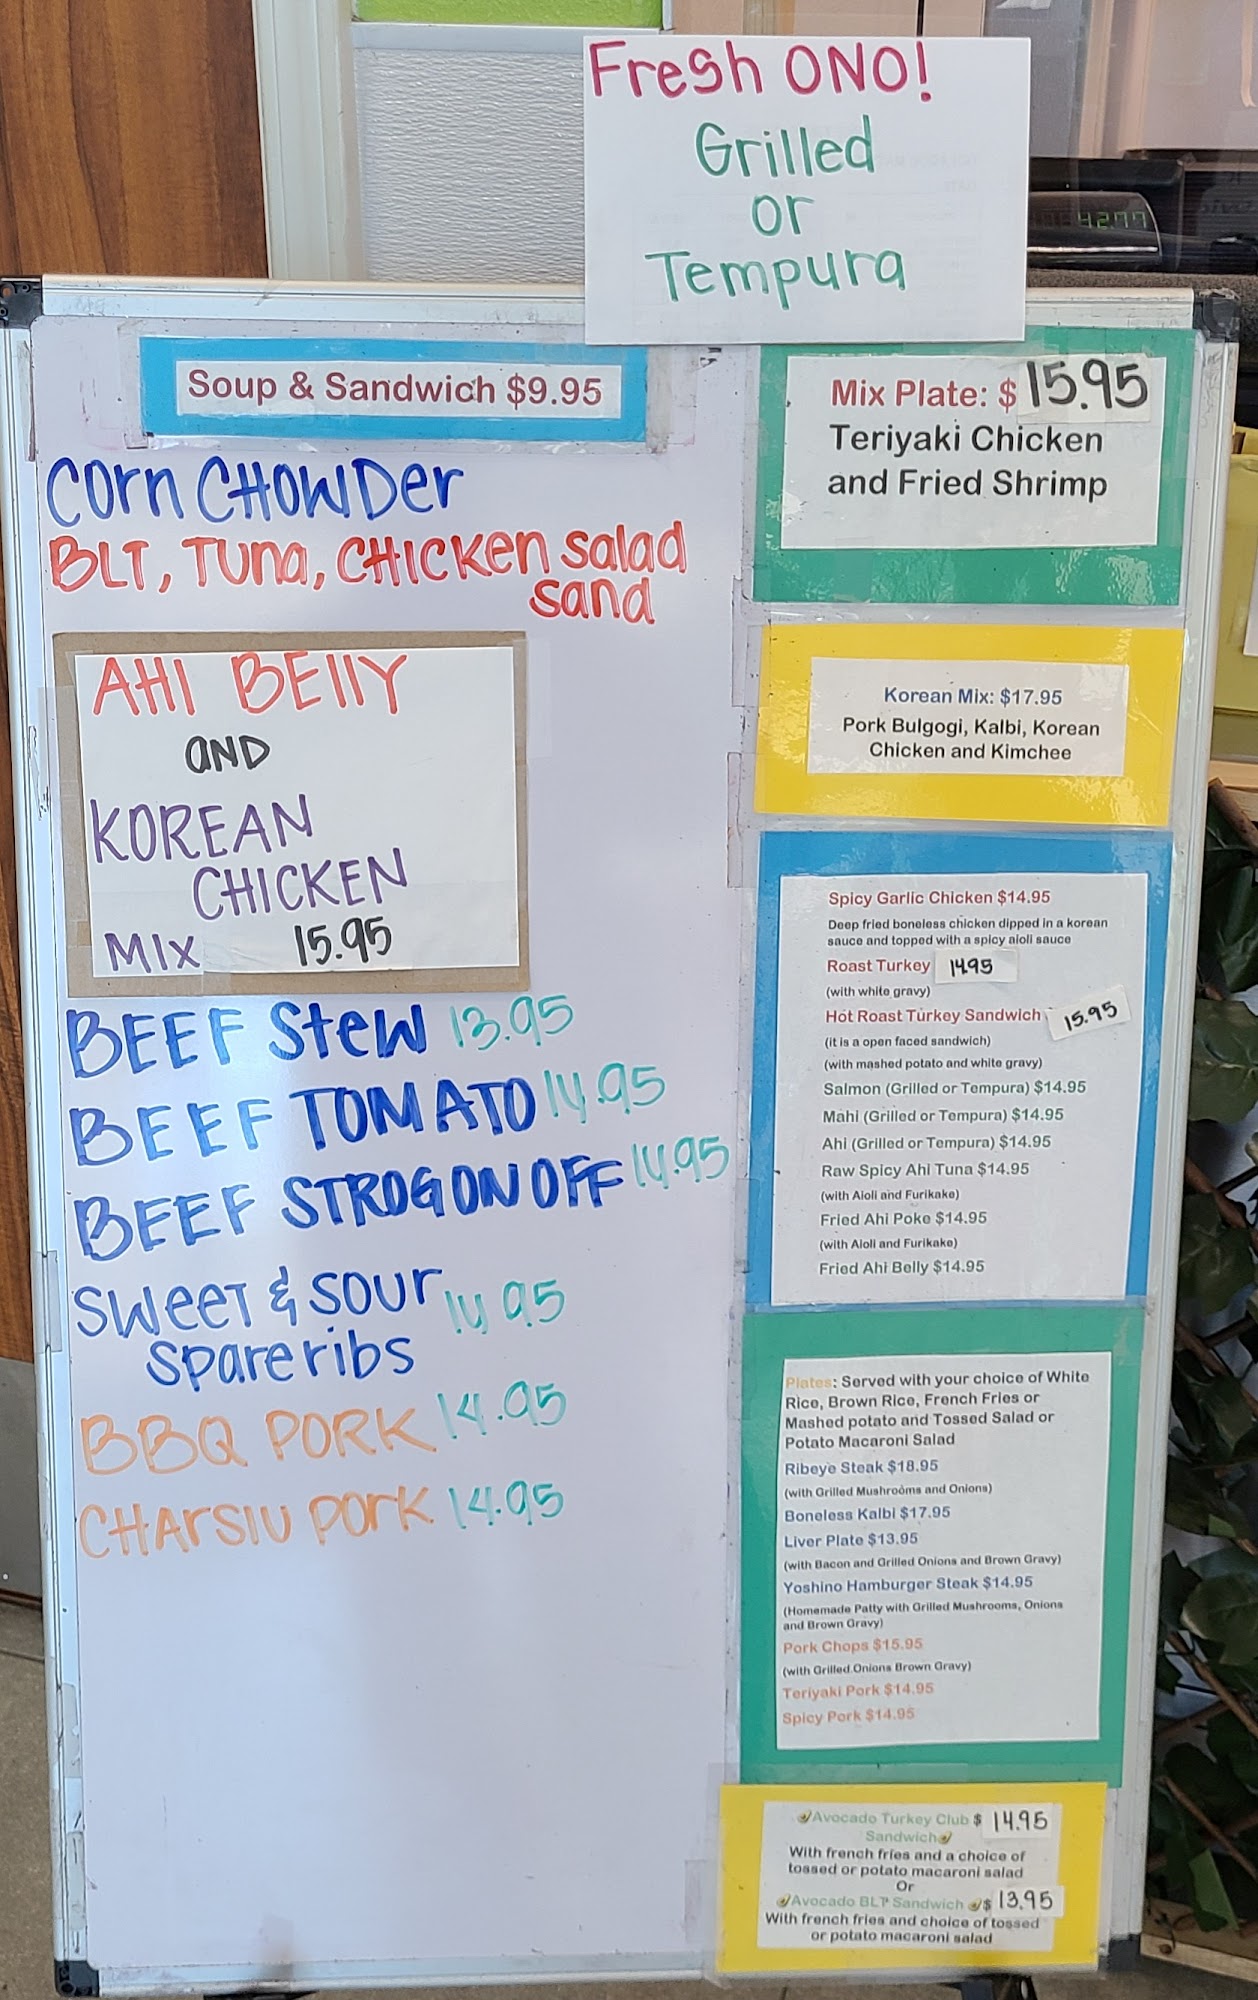 Fresh ONO!
Grilled
or
Tempura
Soup & Sandwich $9.95
Corn CHOWDer
BLT, Tuna, CHICKen salad
sand
AHI BEllY
AND
KOREAN
CHICKEN
MIX 15.95
BEEF Stew 13.95
BEEF TOMATO 14.95
BEEF STROGONOFF 14.95
Sweet & Sour 14 95
spareribs
BBQ PORK 14.95
CHARSIU PORK 14.95
Mix Plate: $ 15.95
Teriyaki Chicken
and Fried Shrimp
Korean Mix: $17.95
Pork Bulgogi, Kalbi, Korean
Chicken and Kimchee
Spicy Garlic Chicken $14.95
Deep fried boneless chicken dipped in a korean
sauce and topped with a spicy aioli sauce
Roast Turkey 14.95
(with white gravy)
Hot Roast Turkey Sandwich 15.95
(it is a open faced sandwich)
(with mashed potato and white gravy)
Salmon (Grilled or Tempura) $14.95
Mahi (Grilled or Tempura) $14.95
Ahi (Grilled or Tempura) $14.95
Raw Spicy Ahi Tuna $14.95
(with Aioli and Furikake)
Fried Ahi Poke $14.95
(with Aioli and Furikake)
Fried Ahi Belly $14.95
Plates: Served with your choice of White
Rice, Brown Rice, French Fries or
Mashed potato and Tossed Salad or
Potato Macaroni Salad
Ribeye Steak $18.95
(with Grilled Mushrooms and Onions)
Boneless Kalbi $17.95
Liver Plate $13.95
(with Bacon and Grilled Onions and Brown Gravy)
Yoshino Hamburger Steak $14.95
(Homemade Patty with Grilled Mushrooms, Onions
and Brown Gravy)
Pork Chops $15.95
(with Grilled Onions Brown Gravy)
Teriyaki Pork $14.95
Spicy Pork $14.95
Avocado Turkey Club $ 14.95
Sandwich
With french fries and a choice of
tossed or potato macaroni salad
Or
Avocado BLT Sandwich $ 13.95
With french fries and choice of tossed
or potato macaroni salad